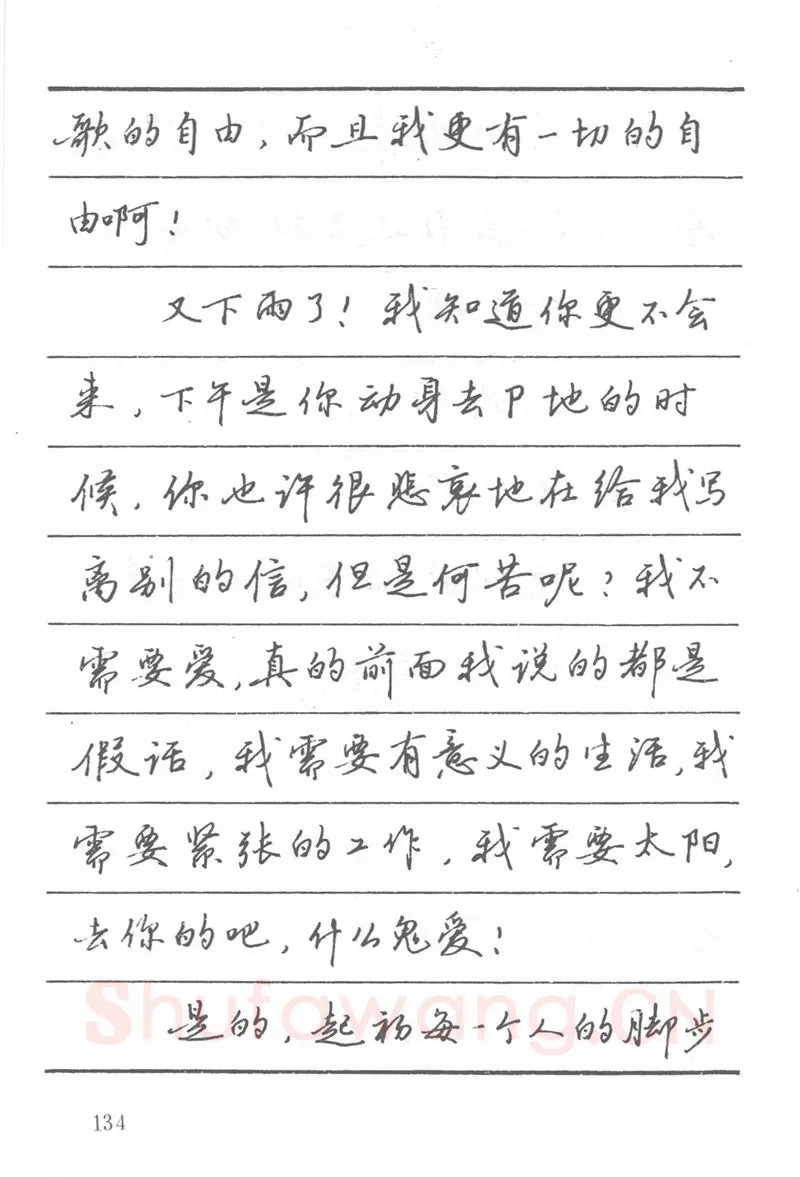 歌的自由，而且我更有一切的自
由啊！
又下雨了！我知道你更不会
来，下午是你动身去P地的时
候，你也许很悲哀地在给我写
离别的信，但是何苦呢？我不
需要爱，真的前面我说的都是
假话，我需要有意义的生活，我
需要紧张的工作，我需要太阳，
去你的吧，什么鬼爱！
是的，起初每一个人的脚步
Shufawang.CN
134